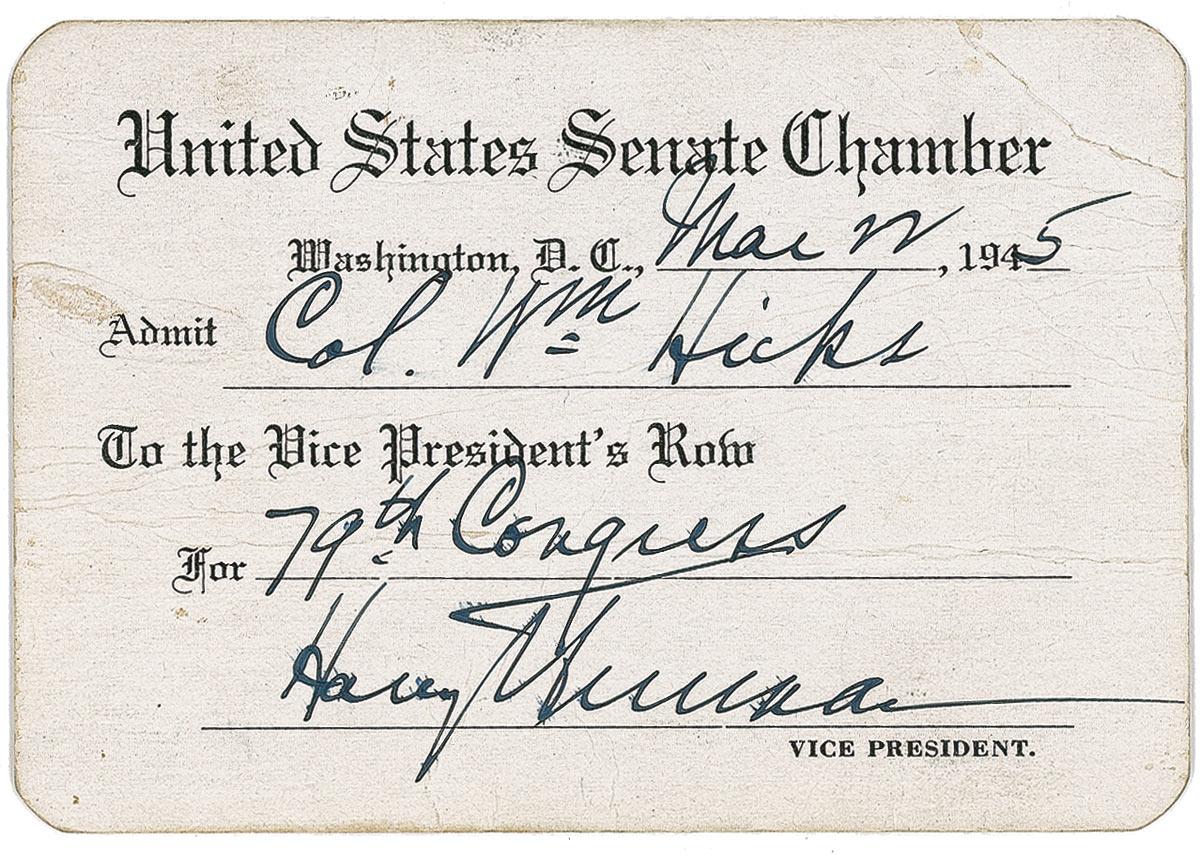 United States Senate Chamber
Washington, D. C., Mar 22, 1945
Admit Col. Wm Hicks
To the Vice President's Row
For 79th Congress
Harry Truman
VICE PRESIDENT.